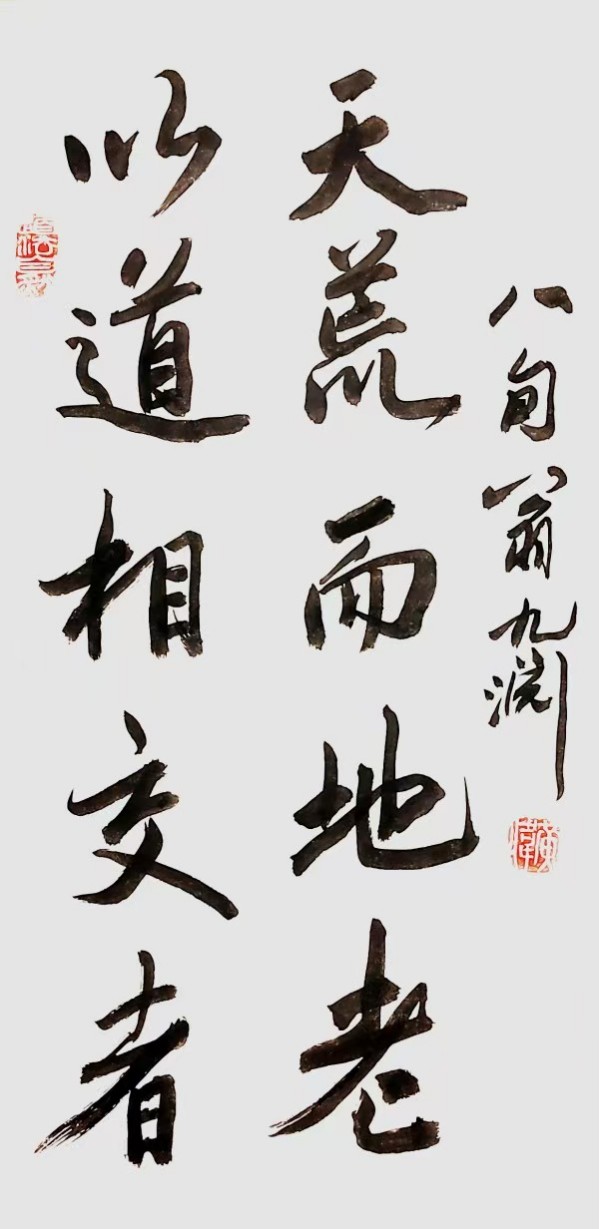 以道相交者
天荒而地老
八旬翁九渊